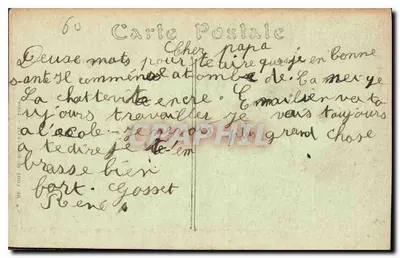 60
Carte Postale
Cher papa
Deuse mots pour te dire que je en bonne
sante Il commense a tombe de la nei ge
La chatte vite encre. Emilien va to
ujours travailler je vais toujours
a l'ecole je plus grand chose
a te dire je t'em
brasse bien
fort. Gosset
Rene